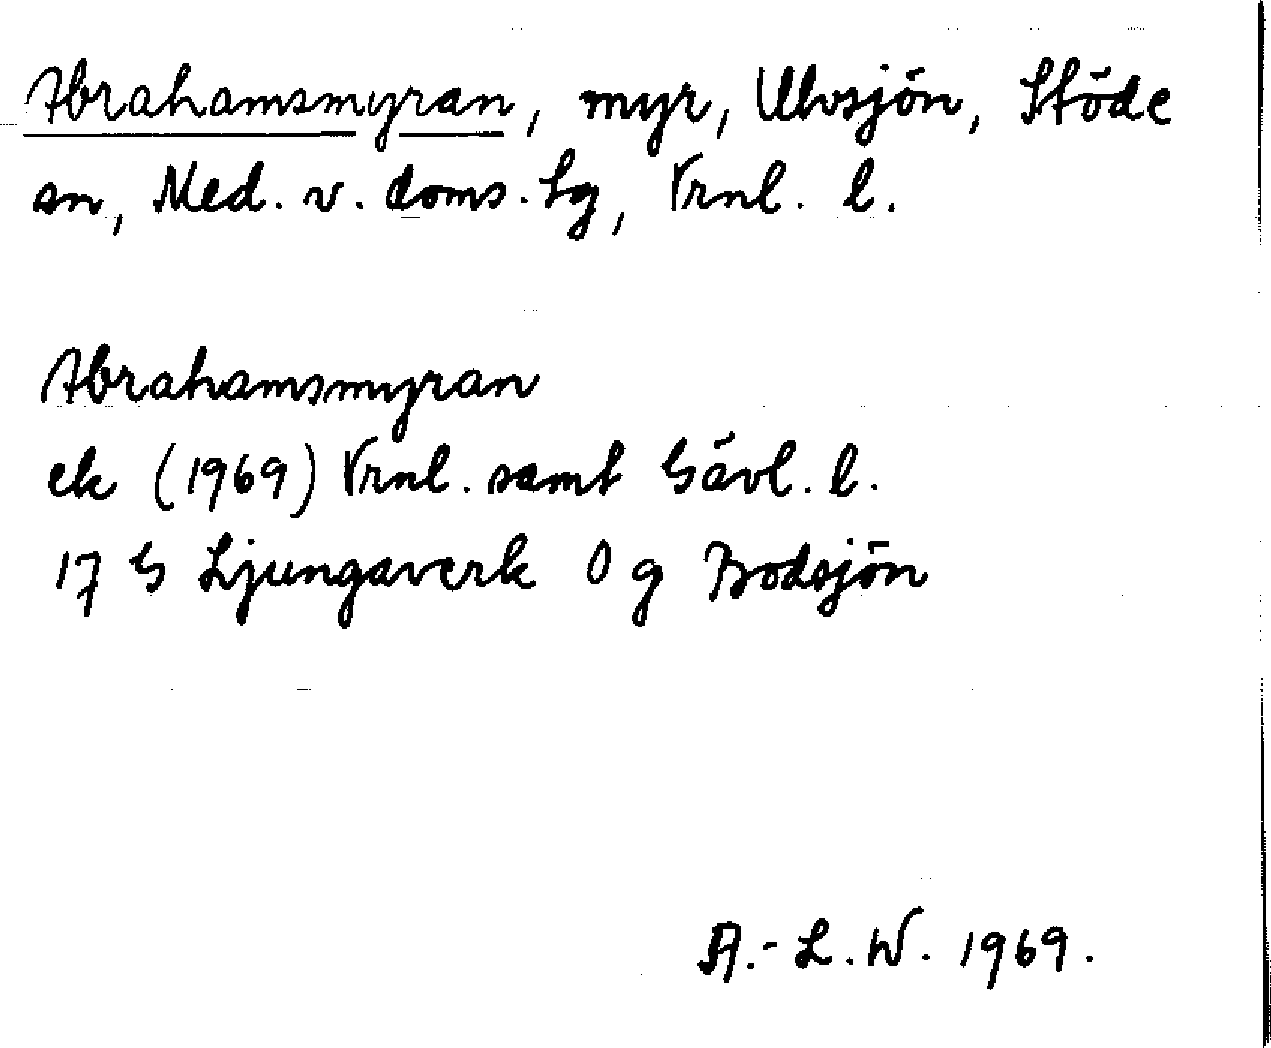 Abrahamsmyran, myr, Ulvsjön, Stöde
sn, Med. v. doms. lg, Vrnl. l.
Abrahamsmyran
ek (1969) Vrnl. samt Gävl. l.
17 G Ljungaverk 0 g Bodsjön
A.-L. W. 1969.